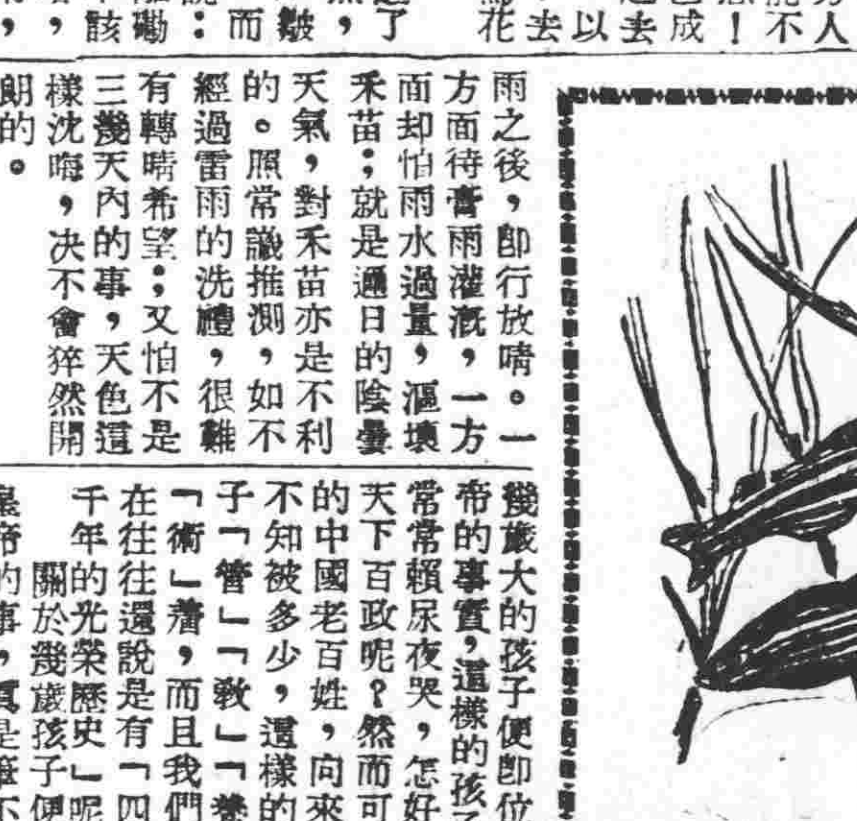 人
不
！
成
去
以
去
花
了
，
皺
而
：
磡
該
，
，
雨之後，即行放晴。一
方面待膏雨灌溉，一方
面却怕雨水過量，漚壞
禾苗；就是邇日的陰曇
天氣，對禾苗亦是不利
的。照常識推測，如不
經過雷雨的洗禮，很難
有轉晴希望；又怕不是
三幾天內的事，天色這
樣沈晦，决不會猝然開
朗的。
幾歲大的孩子便即位
帝的事實，這樣的孩子
常常賴尿夜哭，怎好
天下百政呢？然而可
的中國老百姓，向來
不知被多少，這樣的
子「管」「敎」「養
「術」着，而且我們
在往往還說是有「四
千年的光榮歷史」呢
關於幾歲孩子便
帝的事，眞是筆不